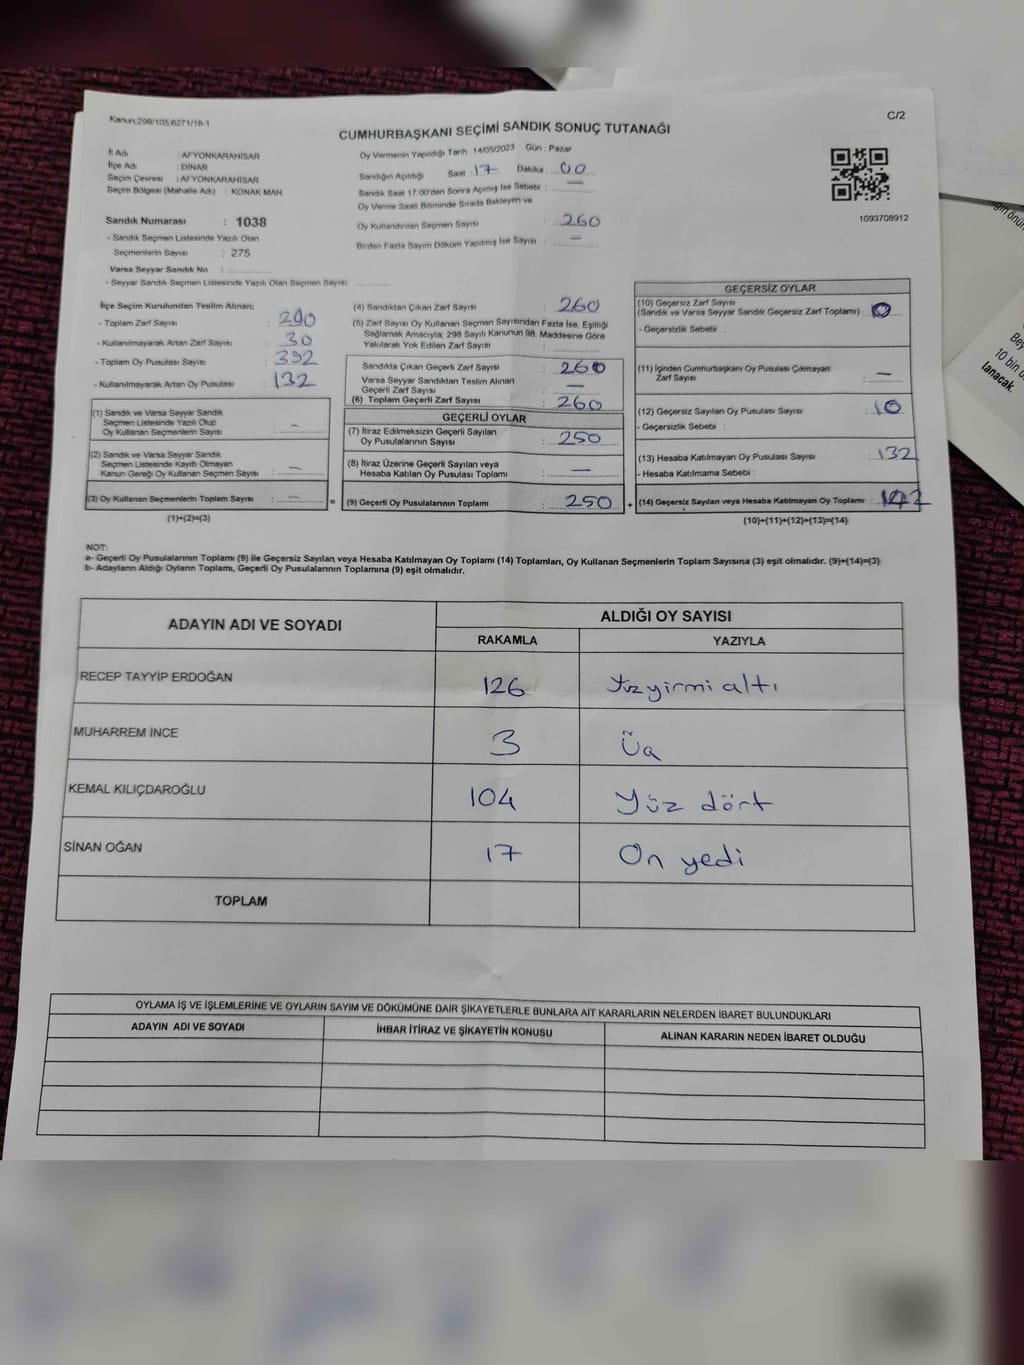 Kanun:298/105;6271/18-1
C/2
CUMHURBAŞKANI SEÇİMİ SANDIK SONUÇ TUTANAĞI
İl Adı : AFYONKARAHİSAR
İlçe Adı : DİNAR
Seçim Çevresi : AFYONKARAHİSAR
Seçim Bölgesi (Mahalle Adı) : KONAK MAH.
Sandık Numarası : 1038
- Sandık Seçmen Listesinde Yazılı Olan
Seçmenlerin Sayısı : 275
Varsa Seyyar Sandık No :
- Seyyar Sandık Seçmen Listesinde Yazılı Olan Seçmen Sayısı:
Oy Vermenin Yapıldığı Tarih : 14/05/2023 Gün : Pazar
Sandığın Açıldığı Saat : 17 Dakika : 00
Sandık Saat 17:00'den Sonra Açımış İse Sebebi : —
Oy Verme Saati Bitiminde Sırada Bekleyen ve
Oy Kullandırılan Seçmen Sayısı : 260
Birden Fazla Sayım Döküm Yapılmış İse Sayısı : —
1093708912
İlçe Seçim Kurulundan Teslim Alınan;
- Toplam Zarf Sayısı : 290
- Kullanılmayarak Artan Zarf Sayısı : 30
- Toplam Oy Pusulası Sayısı : 392
- Kullanılmayarak Artan Oy Pusulası : 132
(1) Sandık ve Varsa Seyyar Sandık
Seçmen Listesinde Yazılı Olup
Oy Kullanan Seçmenlerin Sayısı : —
(2) Sandık ve Varsa Seyyar Sandık
Seçmen Listesinde Kayıtlı Olmayan
Kanun Gereği Oy Kullanan Seçmen Sayısı : —
(3) Oy Kullanan Seçmenlerin Toplam Sayısı : — =
(1)+(2)=(3)
(4) Sandıktan Çıkan Zarf Sayısı : 260
(5) Zarf Sayısı Oy Kullanan Seçmen Sayısından Fazla İse, Eşitliği
Sağlamak Amacıyla; 298 Sayılı Kanunun 98. Maddesine Göre
Yakılarak Yok Edilen Zarf Sayısı :
Sandıkta Çıkan Geçerli Zarf Sayısı : 260
Varsa Seyyar Sandıktan Teslim Alınan
Geçerli Zarf Sayısı : —
(6) Toplam Geçerli Zarf Sayısı : 260
GEÇERLİ OYLAR
(7) İtiraz Edilmeksizin Geçerli Sayılan
Oy Pusulalarının Sayısı : 250
(8) İtiraz Üzerine Geçerli Sayılan veya
Hesaba Katılan Oy Pusulası Toplamı : —
(9) Geçerli Oy Pusulalarının Toplamı : 250 +
GEÇERSİZ OYLAR
(10) Geçersiz Zarf Sayısı
(Sandık ve Varsa Seyyar Sandık Geçersiz Zarf Toplamı) : 0
- Geçersizlik Sebebi :
(11) İçinden Cumhurbaşkanı Oy Pusulası Çıkmayan
Zarf Sayısı : —
(12) Geçersiz Sayılan Oy Pusulası Sayısı : 10
- Geçersizlik Sebebi :
(13) Hesaba Katılmayan Oy Pusulası Sayısı : 132
- Hesaba Katılmama Sebebi :
(14) Geçersiz Sayılan veya Hesaba Katılmayan Oy Toplamı : 142
(10)+(11)+(12)+(13)=(14)
NOT:
a- Geçerli Oy Pusulalarının Toplamı (9) ile Geçersiz Sayılan veya Hesaba Katılmayan Oy Toplamı (14) Toplamları, Oy Kullanan Seçmenlerin Toplam Sayısına (3) eşit olmalıdır. (9)+(14)=(3)
b- Adayların Aldığı Oyların Toplamı, Geçerli Oy Pusulalarının Toplamına (9) eşit olmalıdır.
ADAYIN ADI VE SOYADI
ALDIĞI OY SAYISI
RAKAMLA YAZIYLA
RECEP TAYYİP ERDOĞAN 126 Yüzyirmialtı
MUHARREM İNCE 3 Üç
KEMAL KILIÇDAROĞLU 104 Yüz dört
SİNAN OĞAN 17 On yedi
TOPLAM
OYLAMA İŞ VE İŞLEMLERİNE VE OYLARIN SAYIM VE DÖKÜMÜNE DAİR ŞİKAYETLERLE BUNLARA AİT KARARLARIN NELERDEN İBARET BULUNDUKLARI
ADAYIN ADI VE SOYADI
İHBAR İTİRAZ VE ŞİKAYETİN KONUSU
ALINAN KARARIN NEDEN İBARET OLDUĞU
10 bin
lanacak.